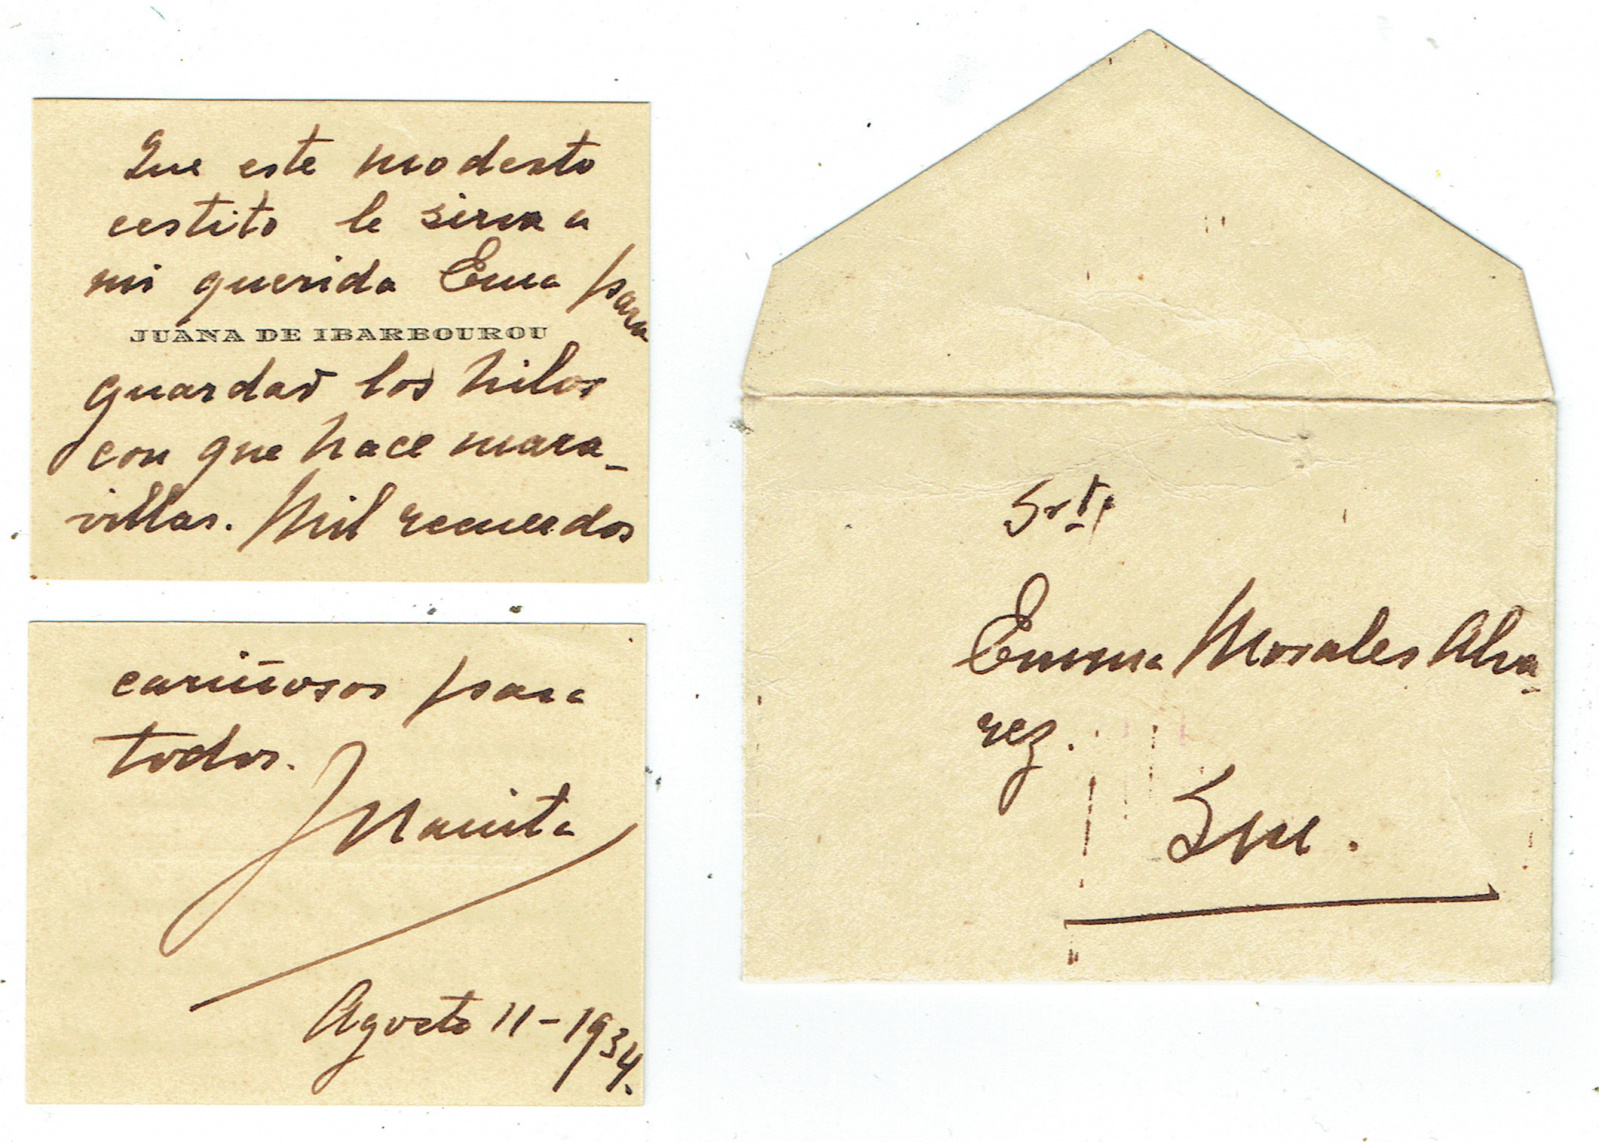 Que este modesto
cestito le sirva a
mi querida Ema para
JUANA DE IBARBOUROU
guardar los hilos
con que hace mara-
villas. Mil recuerdos
cariñosos para
todos.
Juanita
Agosto 11-1934.
Srta
Emma Morales Alva-
rez.
S/M.